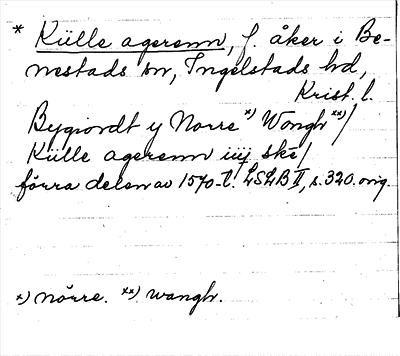 * Külle agerenn, f. åker i Be-
nestads sn, Ingelstads hd,
Krist. l.
Bygiordt y Norre *) Wongh **)/
Külle agerenn iiij ske/
förra delen av 1570-t. LSLB II, s. 320. orig.
*) nörre. **) wangh.